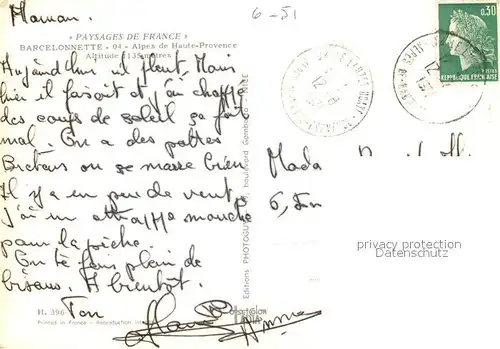 Maman.
6-51
« PAYSAGES DE FRANCE »
BARCELONNETTE - 04 - Alpes de Haute-Provence
Altitude 1135 mètres
0,30
REPUBLIQUE FRANÇAISE
Aujourd'hui il pleut. Mais
hier il faisait et j'ai chopé
des coups de soleil ça fait
mal. On a des potes
Bretons on se marre bien
Il y a un peu de vent
j'ai un attrappe mouche
pour la pêche.
On te fais plein de
bisous. A bientôt.
Ton
Mada
6,
privacy protection
Datenschutz
Editions PHOTOGUY, boulevard Gambetta - NICE
H. 396
Printed in France - Reproduction